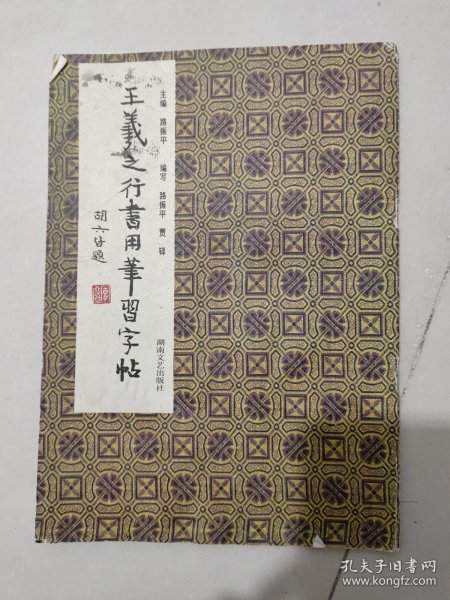 王羲之行書用筆習字帖
胡六皆題
主编 路振平 编写 路振平 贾铎
湖南文艺出版社
孔夫子旧书网
www.kongfz.com